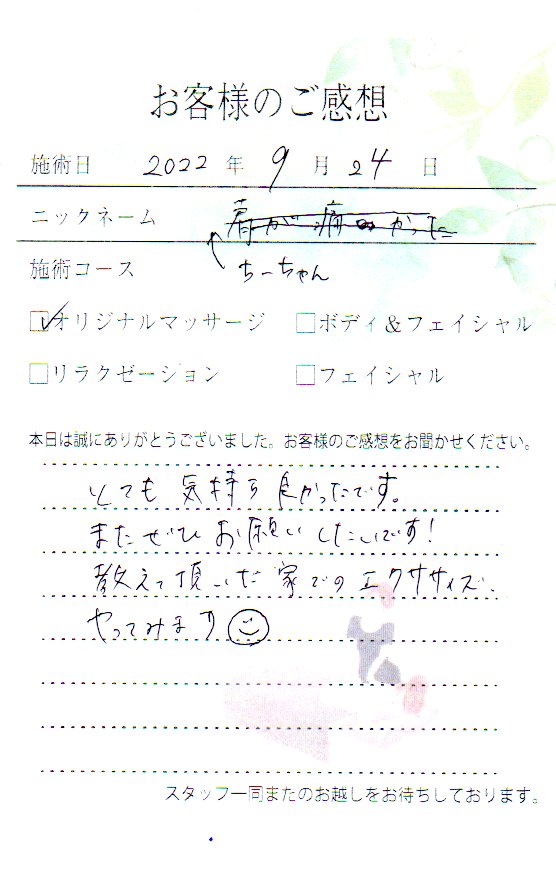 お客様のご感想
施術日 2022 年 9 月 24 日
ニックネーム 肩が痛かった
施術コース ちーちゃん
☑オリジナルマッサージ □ボディ&フェイシャル
□リラクゼーション □フェイシャル
本日は誠にありがとうございました。お客様のご感想をお聞かせください。
とても気持ち良かったです。
またぜひお願いしたいです!
教えて頂いた家でのエクササイズ、
やってみます
スタッフ一同またのお越しをお待ちしております。